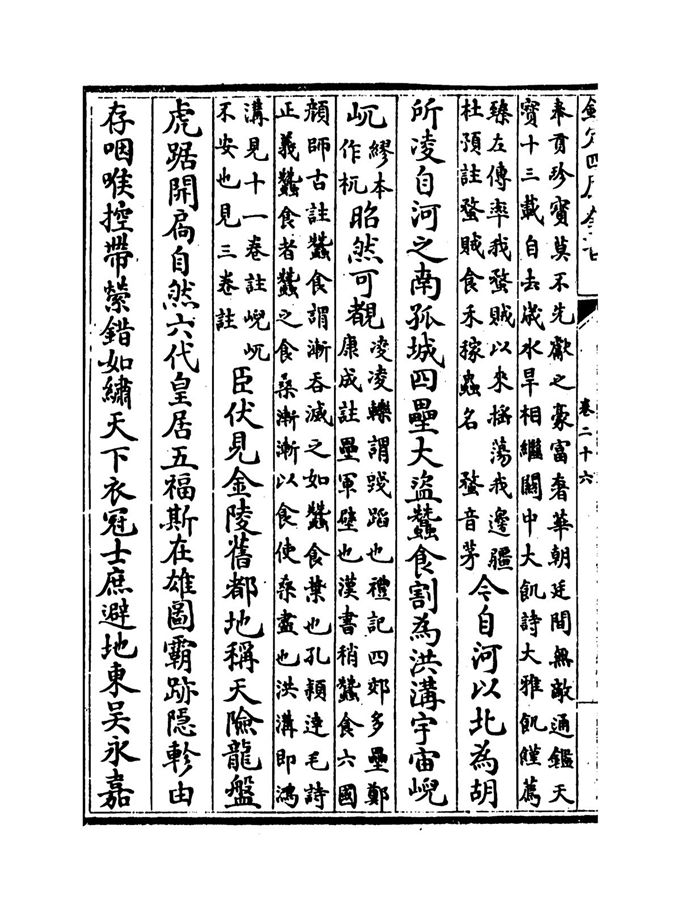 欽定四庫全書
卷二十六
奉貢珍寳莫不先獻之豪富奢華朝廷間無敵通鑑天
寳十三載自去歳水旱相繼關中大飢詩大雅飢饉薦
臻左傳率我蝥賊以來揺蕩我邊疆
杜預註蝥賊食禾稼蟲名 蝥音茅
今自河以北為胡
所凌自河之南孤城四壘大盜蠶食割為洪溝宇宙
屼
繆本
作杌
昭然可覩
凌凌轢謂踐蹈也禮記四郊多壘鄭
康成註壘軍壁也漢書稍蠶食六國
顔師古註蠶食謂漸吞滅之如蠶食葉也孔穎達毛詩
正義蠶食者蠶之食桑漸漸以食使桑盡也洪溝即鴻
溝見十一卷註屼
不安也見三卷註
臣伏見金陵舊都地稱天險龍盤
虎踞開扃自然六代皇居五福斯在雄圖霸跡隱軫由
存咽喉控帶縈錯如繡天下衣冠士庶避地東吳永嘉